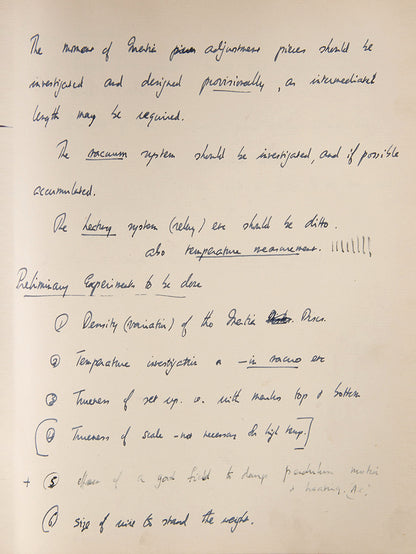 The moment of Inertia adjustment pieces should be
investigated and designed provisionally, as intermediate
length may be required.
The vacuum system should be investigated, and if possible
accumulated.
The heating system (relay) etc should be ditto.
also temperature measurement.
Preliminary Experiments to be done
① Density (variation) of the Inertia Discs.
② Temperature investigation — in vacuo etc
③ Trueness of set up. i.e. with marks top & bottom
[④ Trueness of scale - not necessary for high temp.]
+ ⑤ effect of a good field to damp pendulum motion
& heating. A.C.
⑥ Size of wire to stand the weight.